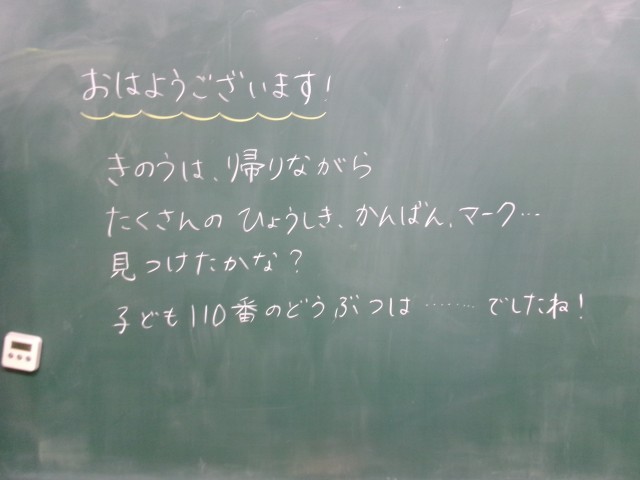 おはようございます!
きのうは、帰りながら
たくさんの ひょうしき、かんばん、マーク…
見つけたかな?
子ども110番のどうぶつは ……… でしたね!